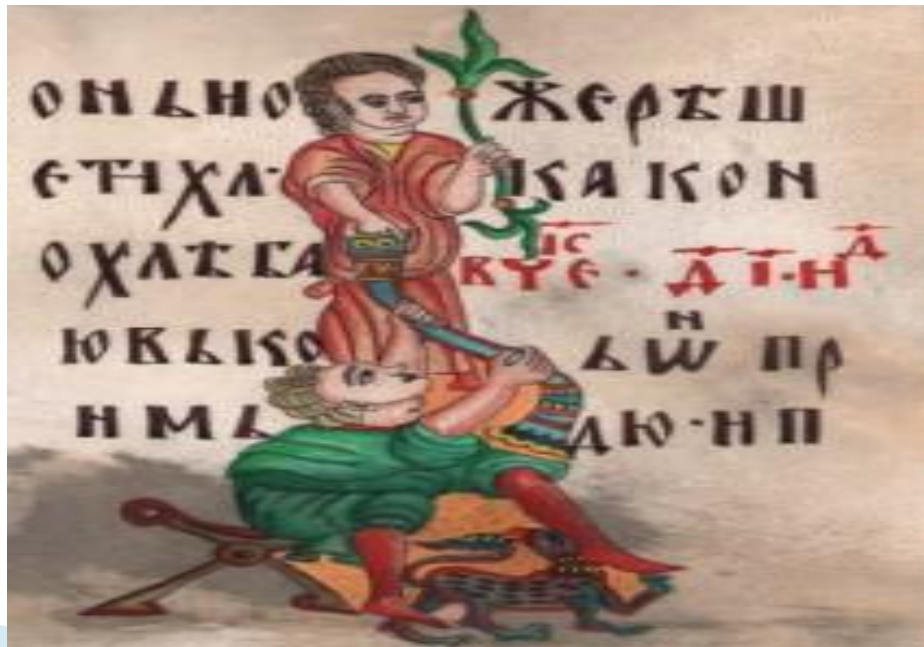 ОНЬНО ЖЕРѢШ
ЕТНХЛ· КАКОН
ОХЛѢБА ВЧ҃Е · Д҃ І҃·Н Д҃
ЮВЬКО ЬѠН ПР
НМЬ ДЮ·НП